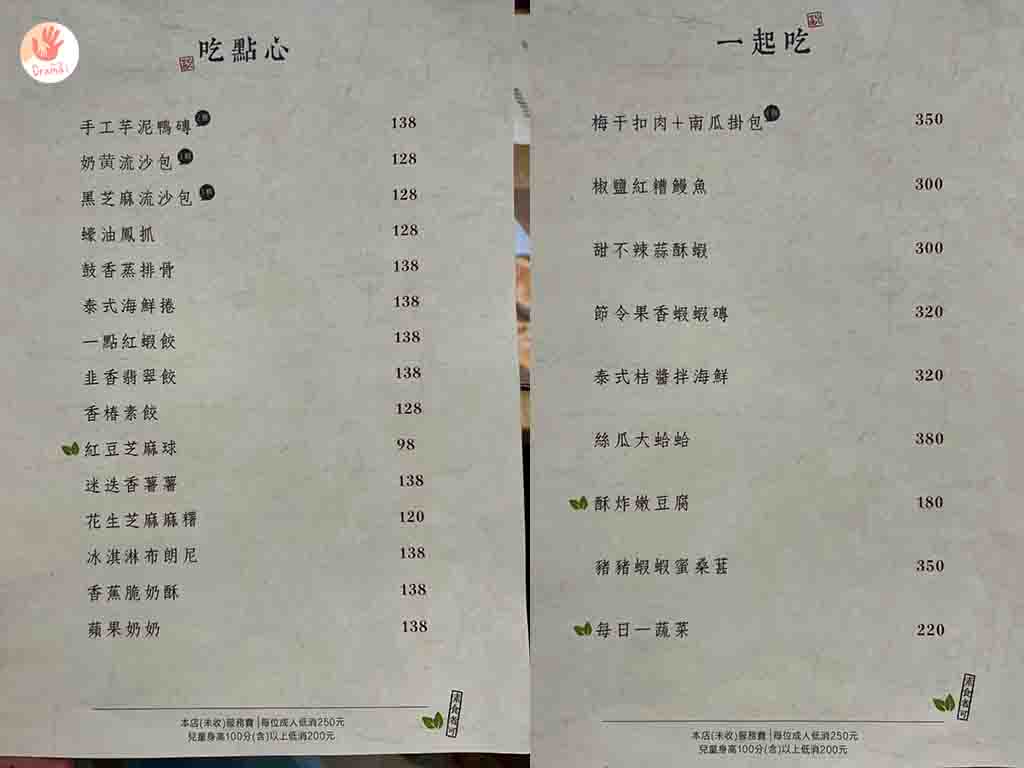 Drama
吃點心
手工芋泥鴨磚 138
奶黃流沙包 128
黑芝麻流沙包 128
蠔油鳳抓 128
鼓香蒸排骨 138
泰式海鮮捲 138
一點紅蝦餃 138
韭香翡翠餃 138
香椿素餃 128
紅豆芝麻球 98
迷迭香薯薯 138
花生芝麻麻糬 120
冰淇淋布朗尼 138
香蕉脆奶酥 138
蘋果奶奶 138
素食者可
本店(未收)服務費|每位成人低消250元
兒童身高100分(含)以上低消200元
一起吃
梅干扣肉+南瓜掛包 350
椒鹽紅糟鰻魚 300
甜不辣蒜酥蝦 300
節令果香蝦蝦磚 320
泰式桔醬拌海鮮 320
絲瓜大蛤蛤 380
酥炸嫩豆腐 180
豬豬蝦蝦蜜桑葚 350
每日一蔬菜 220
素食者可
本店(未收)服務費|每位成人低消250元
兒童身高100分(含)以上低消200元